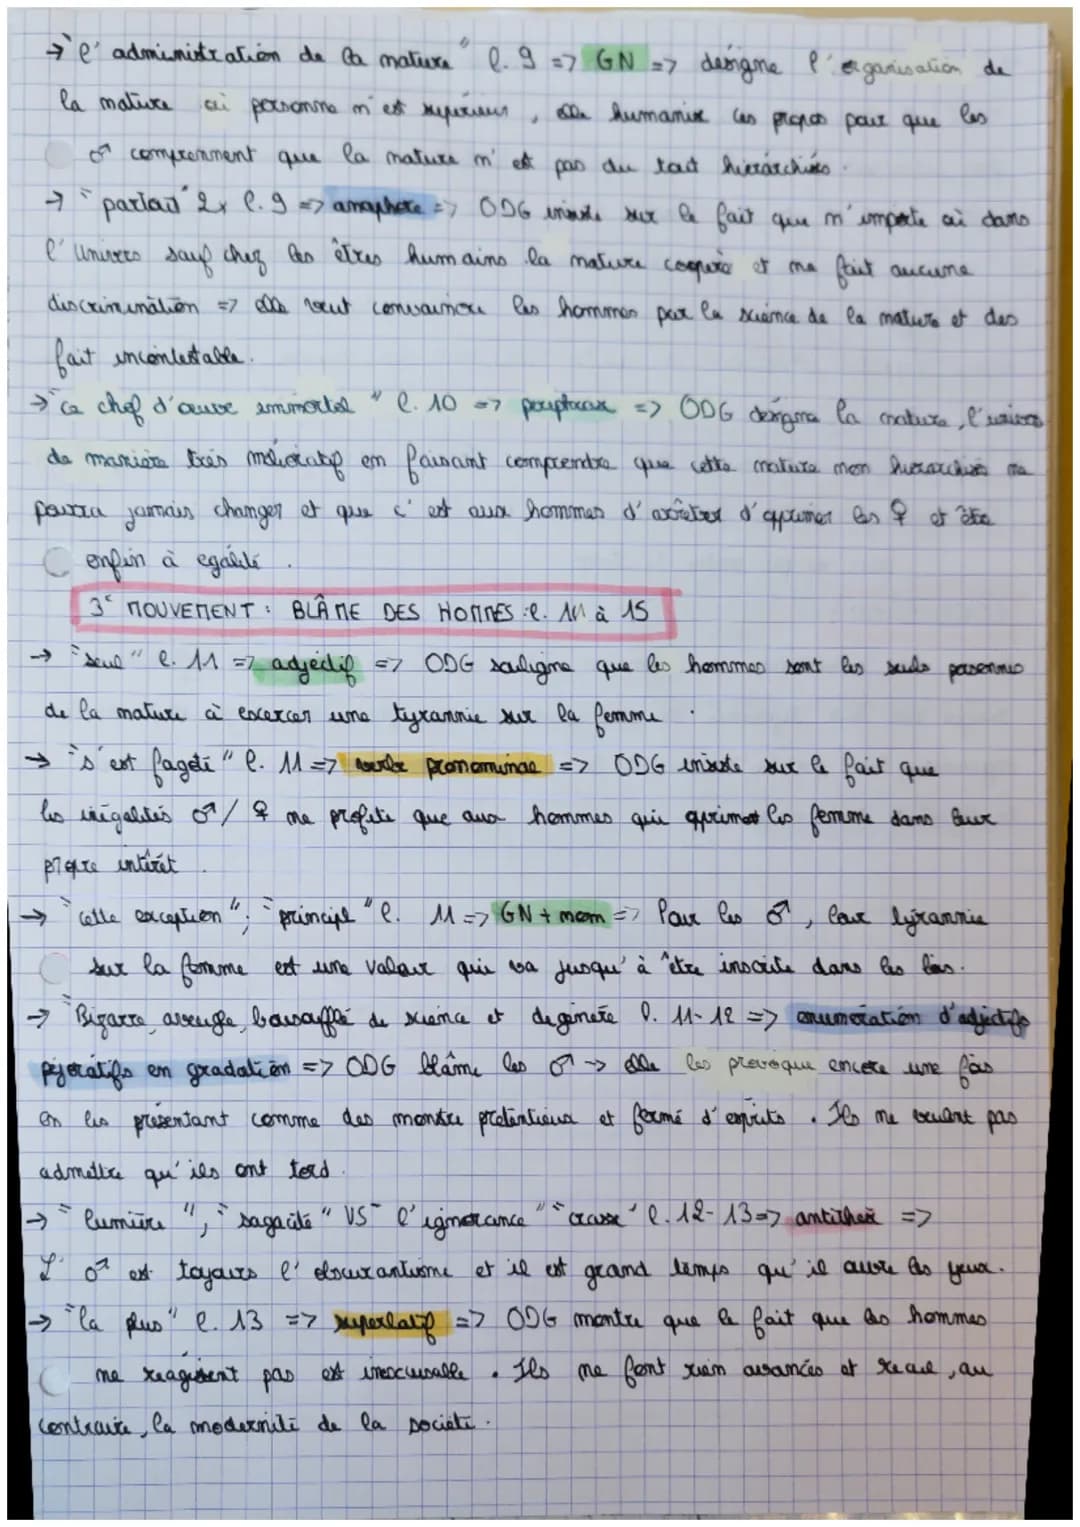 → "l'administration de la nature" l.9 => GN => désigne l'organisation de
la nature où personne n'est supérieur, elle humanise ces propos pour que les
♂ comprennent que la nature n'est pas du tout hiérarchisés.
→ "partout" 2x l.9 => anaphore => ODG insiste sur le fait que n'importe où dans
l'Univers sauf chez les êtres humains la nature coopère et ne fait aucune
discrimination => elle veut convaincre les hommes par la science de la nature et des
fait incontestable.
→ "ce chef d'œuvre immortel" l.10 => périphrase => ODG désigne la nature, l'univers
de manière très mélioratif en faisant comprendre que cette nature non hiérarchisés ne
pourra jamais changer et que c'est aux hommes d'arrêter d'opprimer les ♀ et être
enfin à égalité.
3e MOUVEMENT : BLÂME DES HOMMES : l. 11 à 15
→ "seul" l.11 => adjectif => ODG souligne que les hommes sont les seuls personnes
de la nature à excercer une tyrannie sur la femme.
→ "s'est fagoté" l.11 => verbe pronominal => ODG insiste sur le fait que
les inégalités ♂/♀ ne profite que aux hommes qui opriment les femme dans leur
propre intérêt.
→ "cette exception" ; "principe" l. 11 => GN + nom => Pour les ♂, leur tyrannie
sur la femme est une valeur qui va jusqu'à être inscrite dans les lois.
→ "Bizarre, aveugle, boursoufflé de science et dégénéré l. 11-12 => énumération d'adjectifs
péjoratifs en gradation => ODG blâme les ♂ → elle les provoque encore une fois
en les présentant comme des monstre prétentieux et fermé d'esprits. Ils ne veulent pas
admettre qu'ils ont tord.
→ "lumière", "sagacité" VS "l'ignorance" "crasse" l.12-13 => antithèse =>
L'♂ est toujours l'obscurantisme et il est grand temps qu'il ouvre les yeux.
→ "la plus" l.13 => superlatif => ODG montre que le fait que les hommes
ne réagissent pas est inexcusable. Ils ne font rien avancés et recule, au
contraire, la modernité de la société.